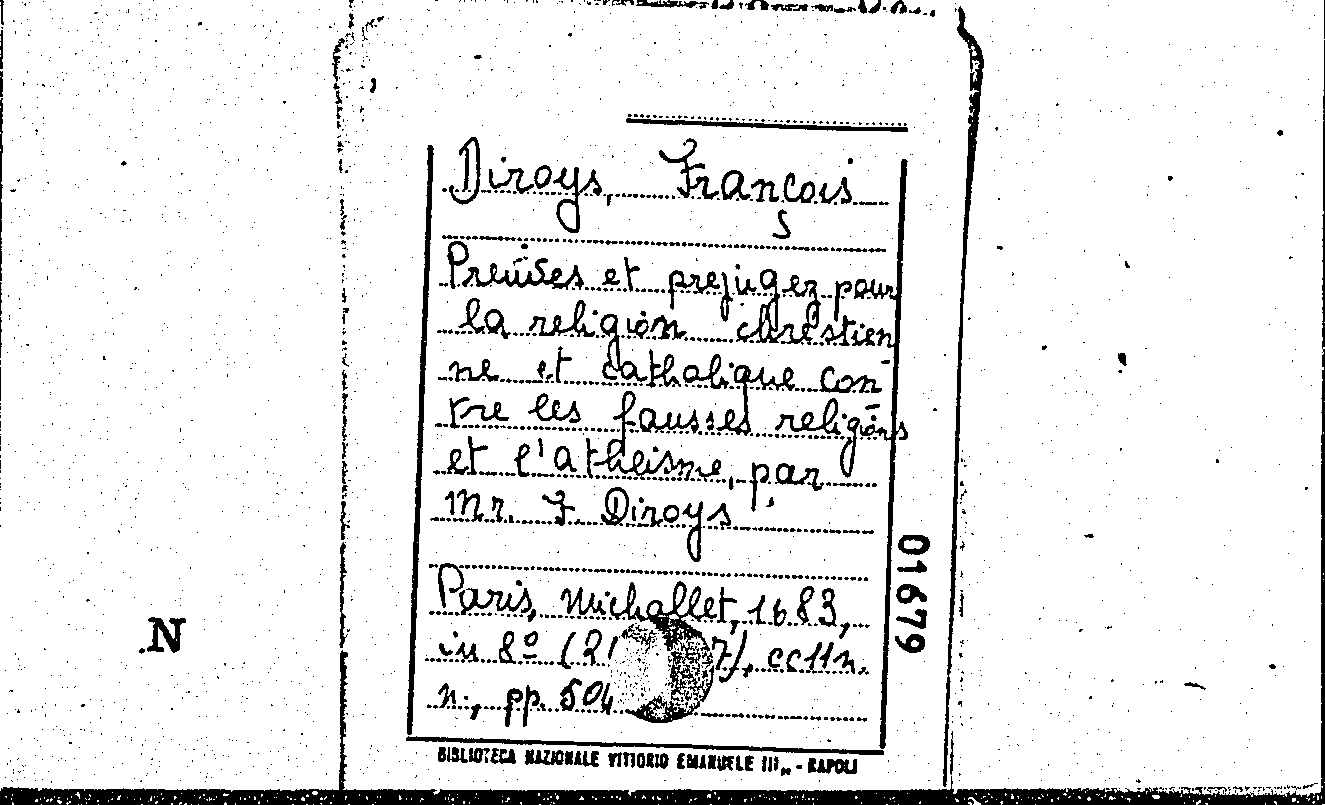 Diroys, François
Preuves et prejugez pour
la religion chrestien
ne et catholique con-
tre les fausses religions
et l'atheisme, par
Mr. F. Diroys
Paris, Michallet, 1683,
in 8º (21 7), cc11n.
n., pp. 504
BIBLIOTECA NAZIONALE VITTORIO EMANUELE III„ - NAPOLI
01679
N